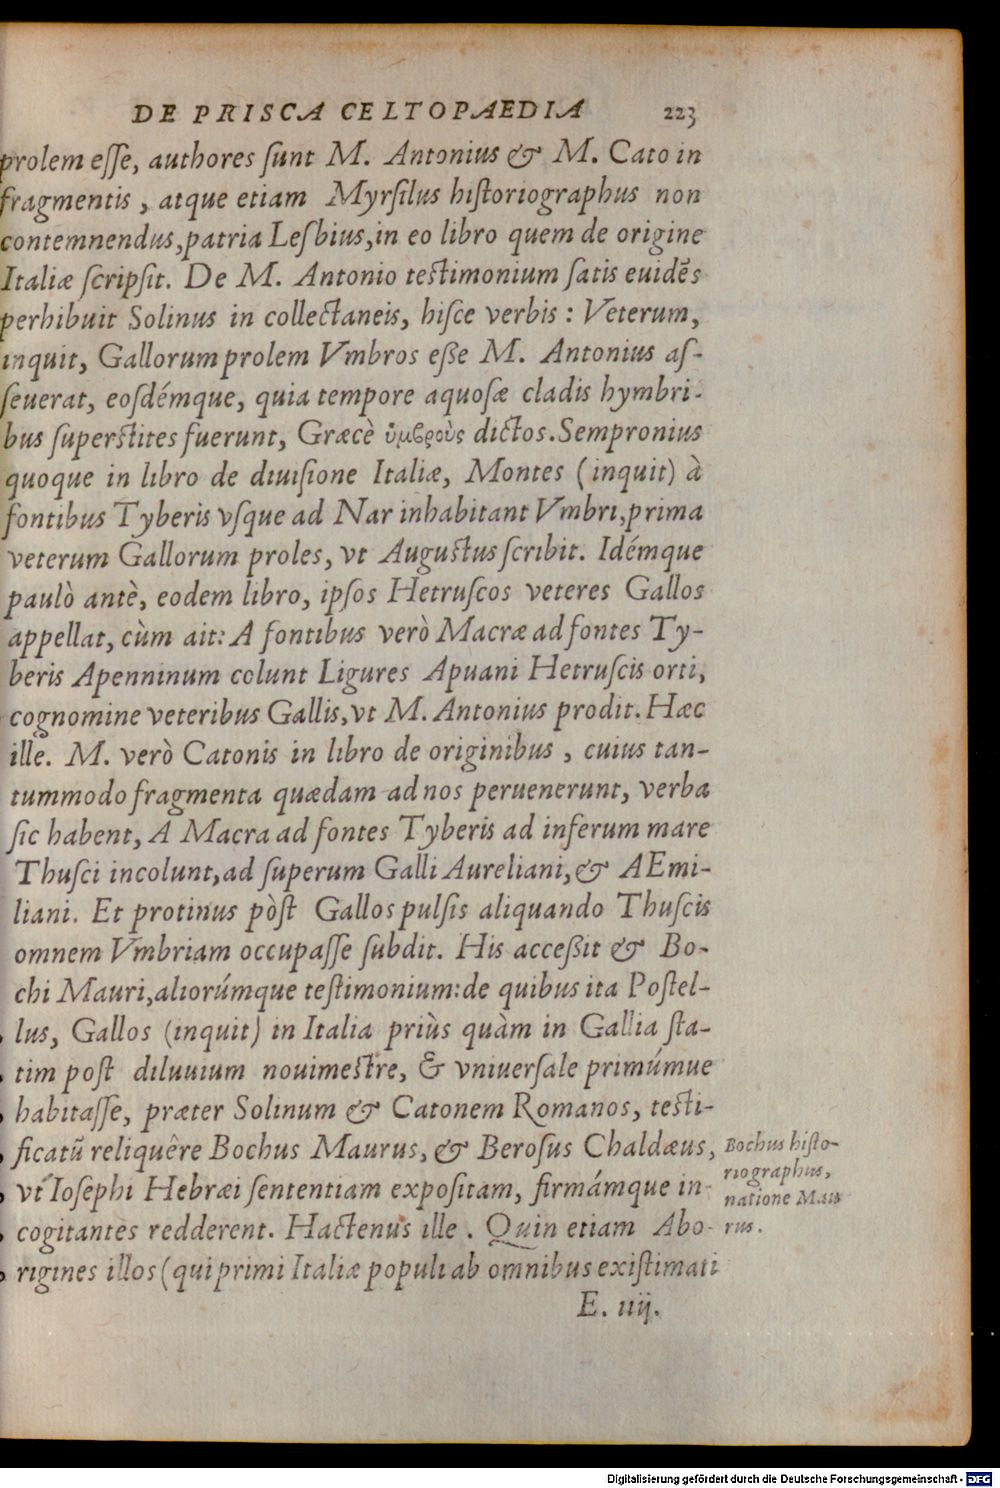 DE PRISCA CELTOPAEDIA 223
prolem esse, authores sunt M. Antonius & M. Cato in
fragmentis, atque etiam Myrsilus historiographus non
contemnendus, patria Lesbius, in eo libro quem de origine
Italiæ scripsit. De M. Antonio testimonium satis euidẽs
perhibuit Solinus in collectaneis, hisce verbis: Veterum,
inquit, Gallorum prolem Vmbros eße M. Antonius as-
seuerat, eosdémque, quia tempore aquosæ cladis hymbri-
bus superstites fuerunt, Græcè ὑμβροὺς dictos. Sempronius
quoque in libro de diuisione Italiæ, Montes (inquit) à
fontibus Tyberis vsque ad Nar inhabitant Vmbri, prima
veterum Gallorum proles, vt Augustus scribit. Idémque
paulò antè, eodem libro, ipsos Hetruscos veteres Gallos
appellat, cùm ait: A fontibus verò Macræ ad fontes Ty-
beris Apenninum colunt Ligures Apuani Hetruscis orti,
cognomine veteribus Gallis, vt M. Antonius prodit. Hæc
ille. M. verò Catonis in libro de originibus, cuius tan-
tummodo fragmenta quædam ad nos peruenerunt, verba
sic habent, A Macra ad fontes Tyberis ad inferum mare
Thusci incolunt, ad superum Galli Aureliani, & AEmi-
liani. Et protinus pòst Gallos pulsis aliquando Thuscis
omnem Vmbriam occupasse subdit. His acceßit & Bo-
chi Mauri, aliorúmque testimonium: de quibus ita Postel-
lus, Gallos (inquit) in Italia priùs quàm in Gallia sta-
tim post diluuium nouimestre, & vniuersale primúmue
habitasse, præter Solinum & Catonem Romanos, testi-
ficatũ reliquêre Bochus Maurus, & Berosus Chaldæus,
vt Iosephi Hebræi sententiam expositam, firmámque in-
cogitantes redderent. Hactenus ille. Quin etiam Abo-
rigines illos (qui primi Italiæ populi ab omnibus existimati
E. iiij.
Bochus histo-
riographus,
natione Mau
rus.
Digitalisierung gefördert durch die Deutsche Forschungsgemeinschaft - DFG